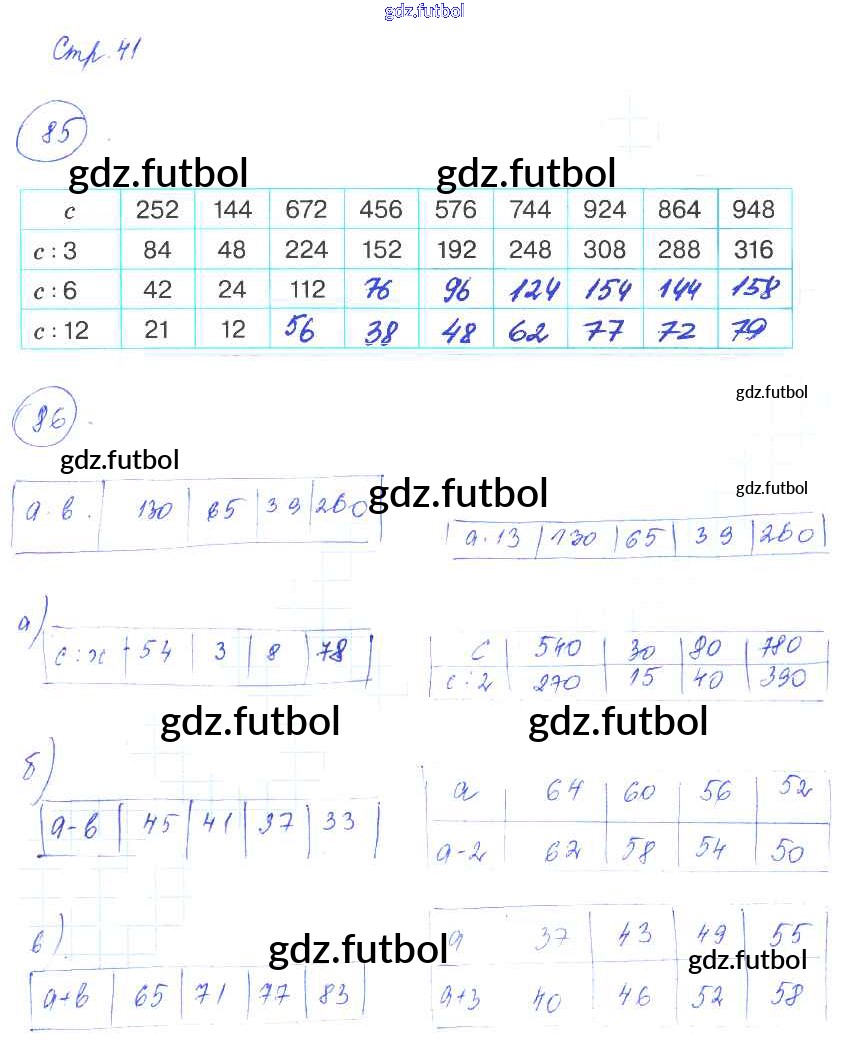 gdz.futbol
Стр. 41
85
gdz.futbol gdz.futbol
c 252 144 672 456 576 744 924 864 948
c : 3 84 48 224 152 192 248 308 288 316
c : 6 42 24 112 76 96 124 154 144 158
c : 12 21 12 56 38 48 62 77 72 79
gdz.futbol
86
gdz.futbol
gdz.futbol gdz.futbol
a · b 130 65 39 260
a · 13 130 65 39 260
а)
c : x 54 3 8 78
c 540 30 80 780
c : 2 270 15 40 390
gdz.futbol gdz.futbol
б)
a - b 45 41 37 33
a 64 60 56 52
a - 2 62 58 54 50
в)
gdz.futbol
a 37 43 49 55
gdz.futbol
a + b 65 71 77 83
a + 3 40 46 52 58